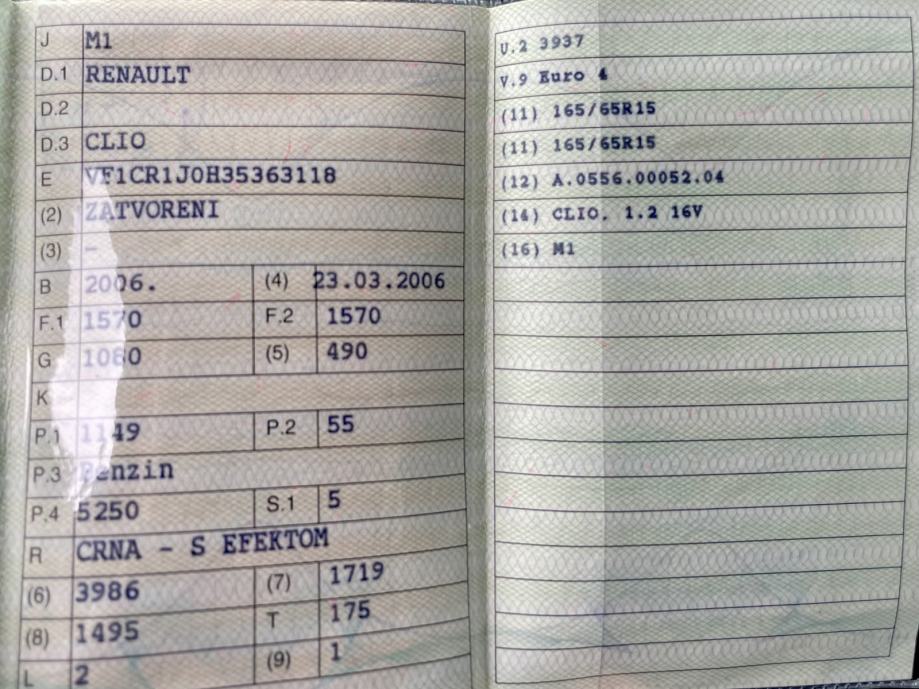 J M1
D.1 RENAULT
D.2
D.3 CLIO
E VF1CR1J0H35363118
(2) ZATVORENI
(3) -
B 2006. (4) 23.03.2006
F.1 1570 F.2 1570
G 1080 (5) 490
K
P.1 1149 P.2 55
P.3 Benzin
P.4 5250 S.1 5
R CRNA - S EFEKTOM
(6) 3986 (7) 1719
(8) 1495 T 175
L 2 (9) 1
U.2 3937
V.9 Euro 4
(11) 165/65R15
(11) 165/65R15
(12) A.0556.00052.04
(14) CLIO. 1.2 16V
(16) M1